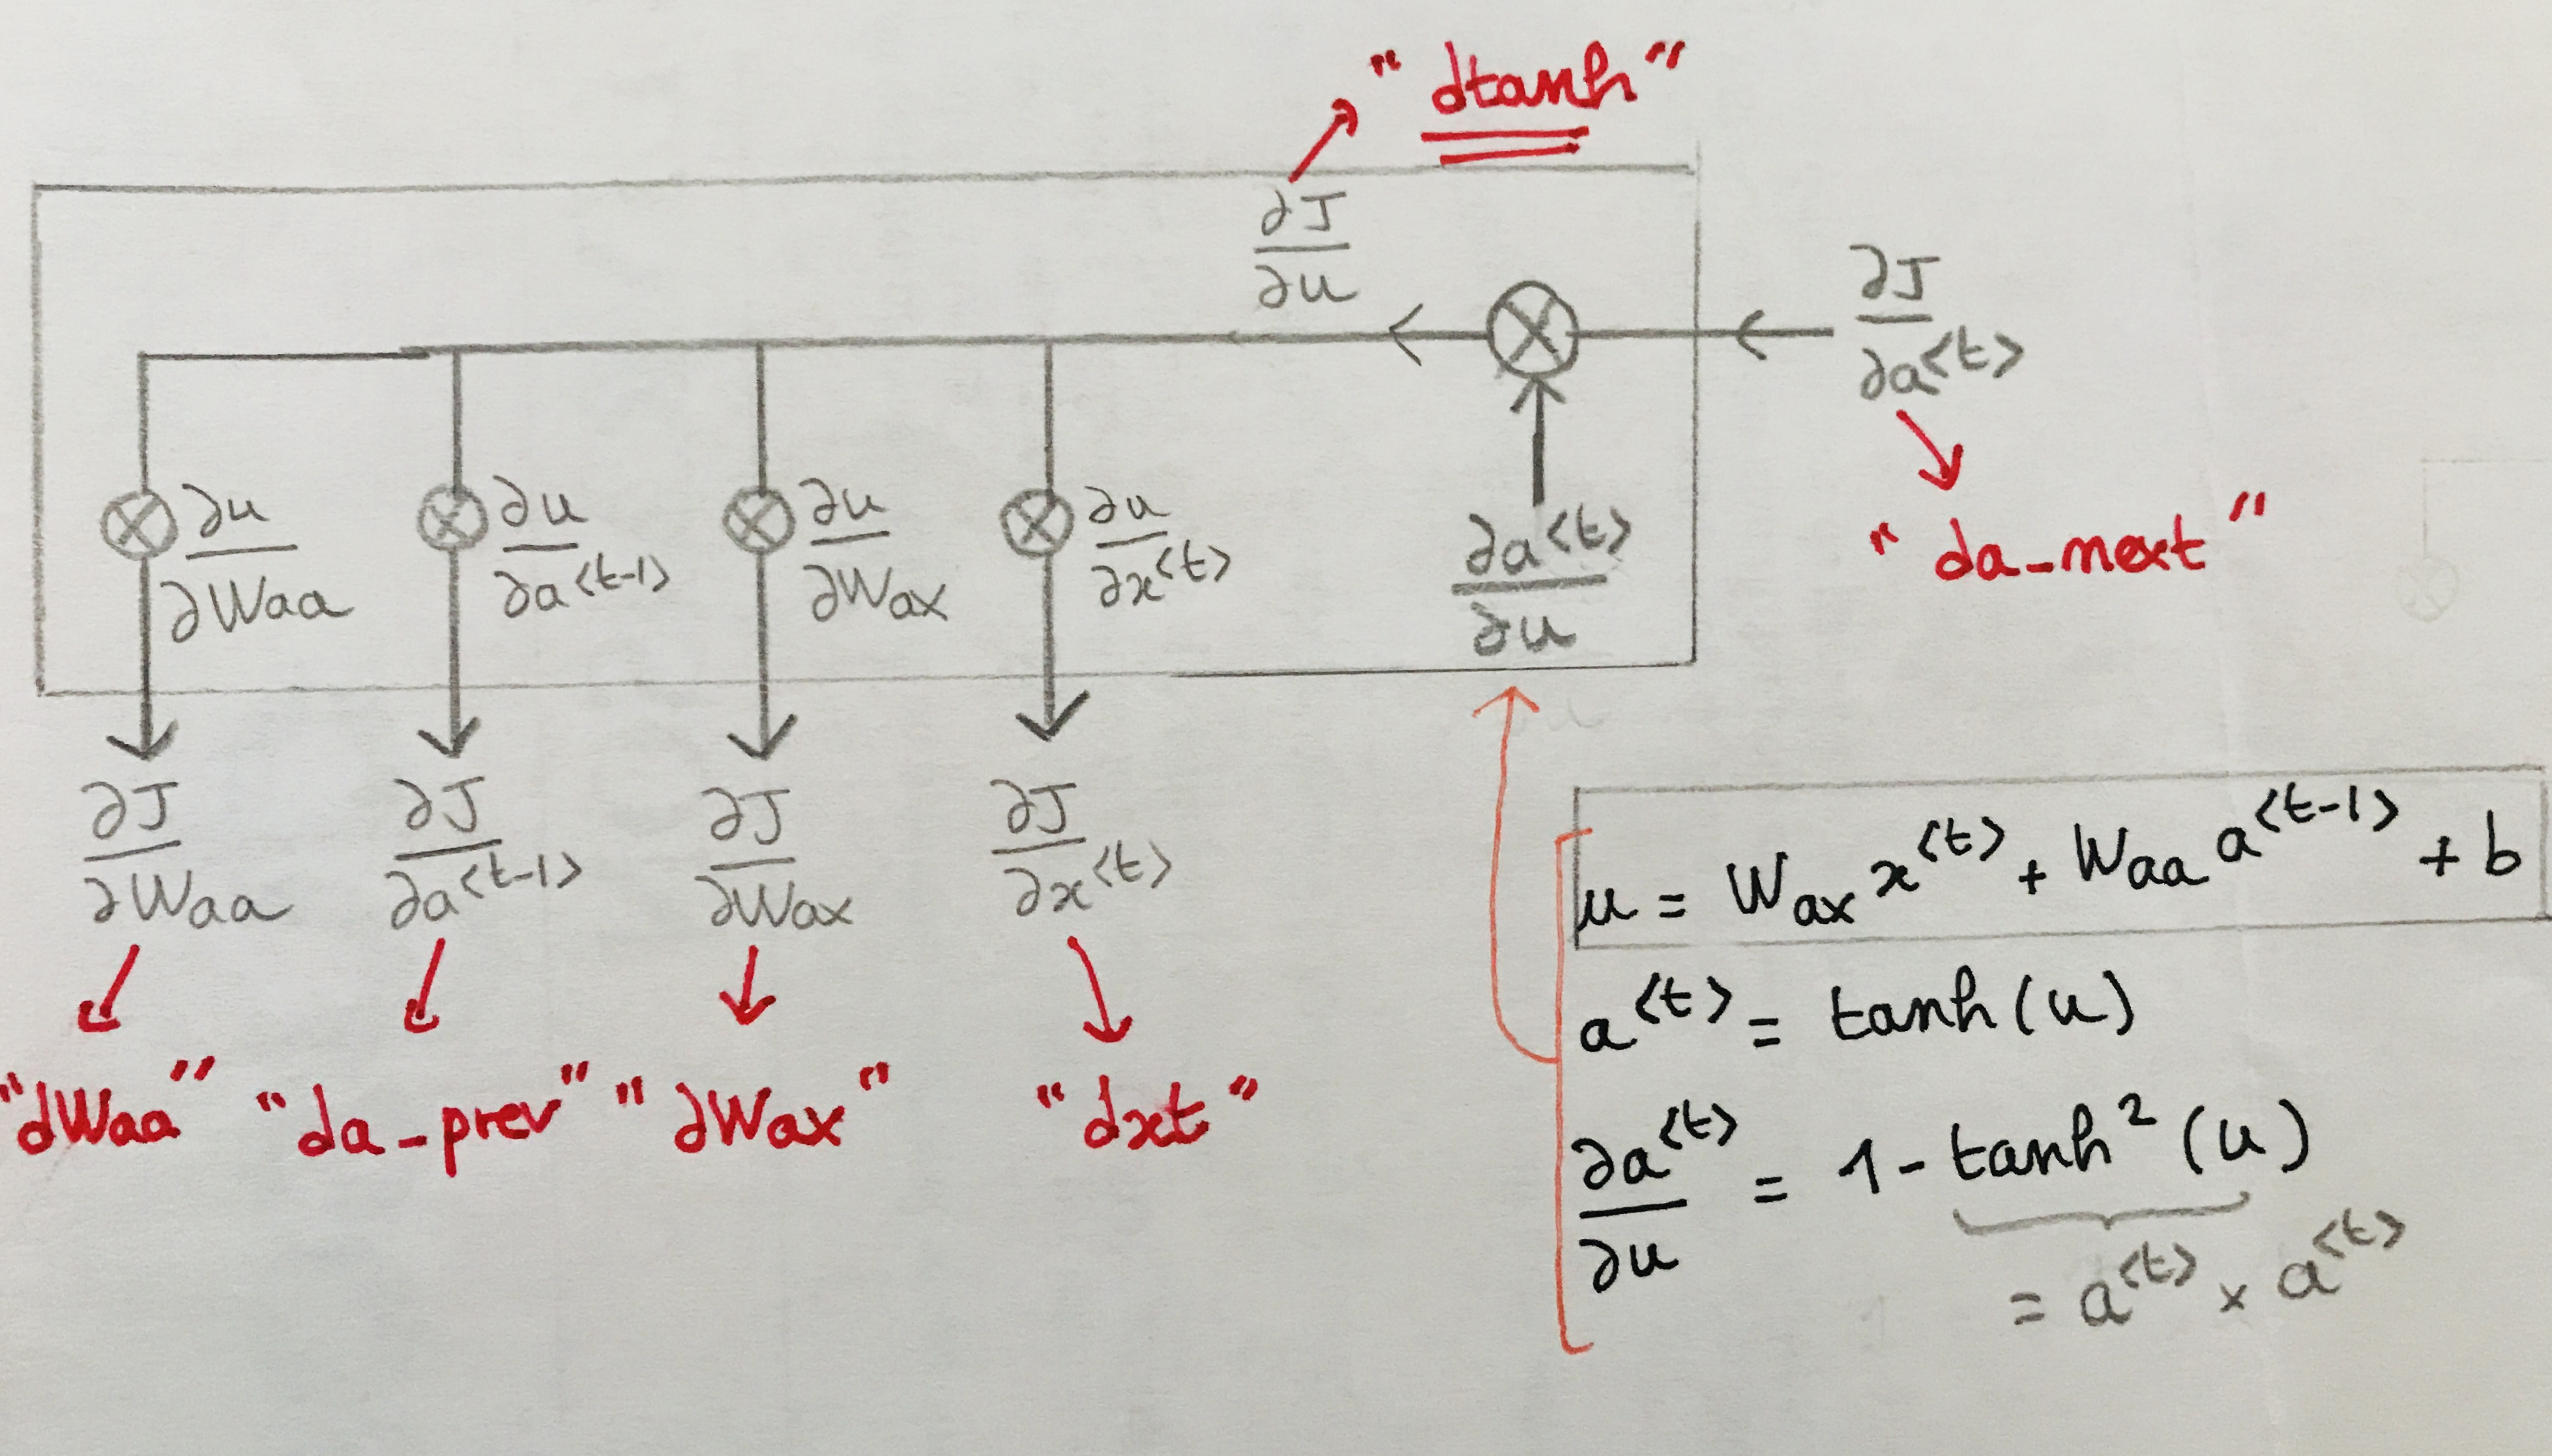 "dtanh"
∂J/∂u
∂J/∂a<t>
"da_next"
∂u/∂Waa
∂u/∂a<t-1>
∂u/∂Wax
∂u/∂x<t>
∂a<t>/∂u
∂J/∂Waa
∂J/∂a<t-1>
∂J/∂Wax
∂J/∂x<t>
"dWaa" "da_prev" "dWax" "dxt"
u = Wax x<t> + Waa a<t-1> + b
a<t> = tanh(u)
∂a<t>/∂u = 1 - tanh²(u)
= a<t> × a<t>